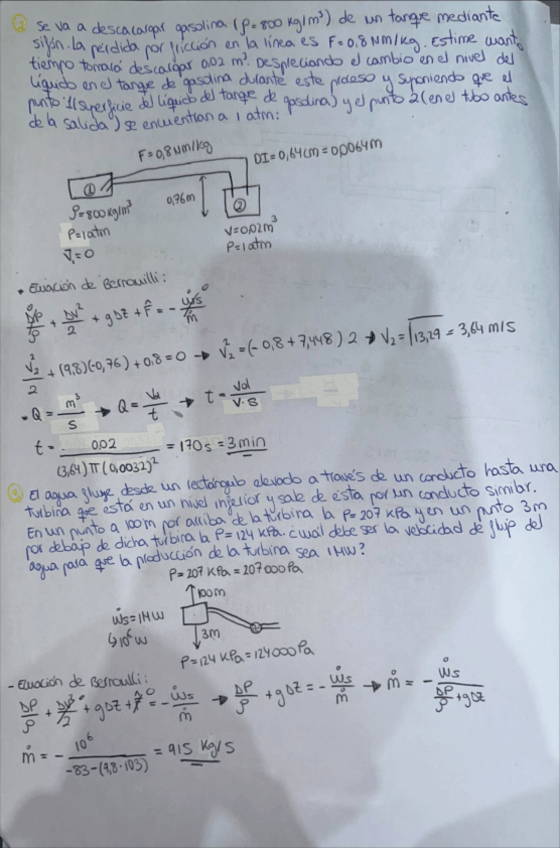 ② Se va a descacargar gasolina (ρ=800 kg/m³) de un tanque mediante
sifón. La pérdida por fricción en la línea es F=0,8 Nm/kg. Estime cuanto
tiempo tomará descargar 0,02 m³. Despreciando el cambio en el nivel del
líquido en el tanque de gasolina durante este proceso y suponiendo que el
punto 1 (superficie del líquido del tanque de gasolina) y el punto 2 (en el tubo antes
de la salida) se encuentran a 1 atm:
F=0,8 Nm/kg
DI=0,64cm=0,0064m
①
0,76m
②
ρ=800 kg/m³
P=1atm
V₁=0
V=0,02m³
P=1atm
• Ecuación de Bernouilli:
ΔP/ρ + ΔV²/2 + gΔZ + F̂ = - Ẇs/ṁ
V₂²/2 + (9,8)(-0,76) + 0,8 = 0 → V₂² = (-0,8 + 7,448) 2 → V₂ = √13,29 = 3,64 m/s
• Q = m³/s → Q = Vol/t → t = Vol/V·S
t = 0,02/(3,64)π(0,0032)² = 170s = 3min
El agua fluye desde un rectángulo elevado a través de un conducto hasta una
turbina que está en un nivel inferior y sale de ésta por un conducto similar.
En un punto a 100m por arriba de la turbina la P=207 kPa y en un punto 3m
por debajo de dicha turbina la P=124 kPa. ¿cuál debe ser la velocidad de flujo del
agua para que la producción de la turbina sea 1MW?
P=207 KPa=207000Pa
↑100m
Ẇs=1MW
↳10⁶W
↓3m
P=124 kPa=124000Pa
- Ecuación de Bernouilli:
ΔP/ρ + ΔV²/2 + gΔZ + F̂ = - Ẇs/ṁ → ΔP/ρ + gΔZ = - Ẇs/ṁ → ṁ = - Ẇs/(ΔP/ρ + gΔZ)
ṁ = - 10⁶/(-83-(9,8·103)) = 915 Kg/s